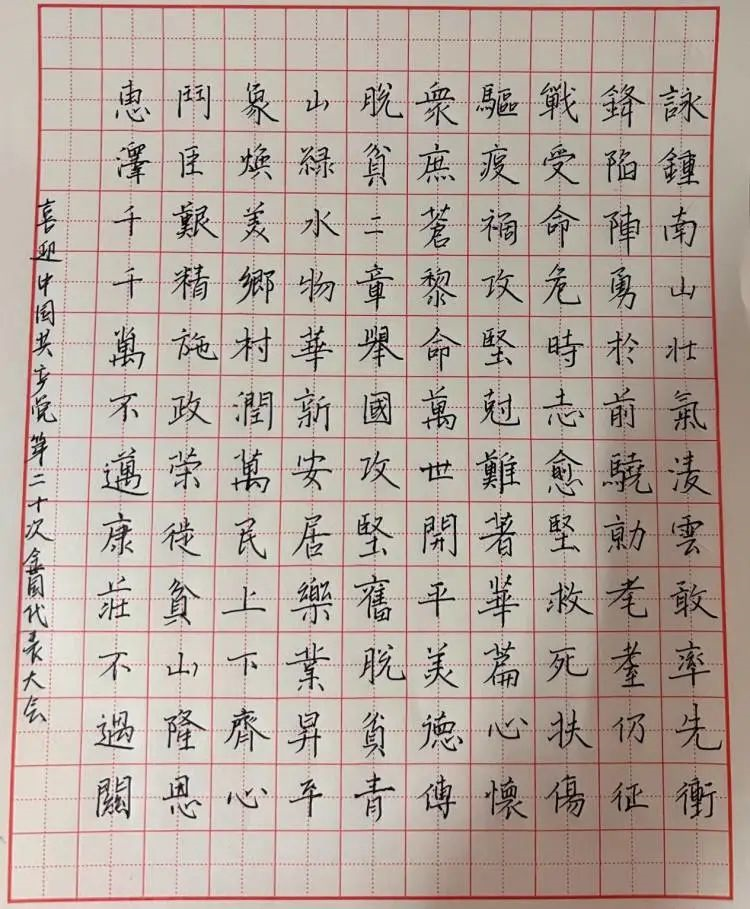 詠鍾南山壯氣淩雲敢率先衝
鋒陷陣勇於前驍勍耄耋仍征
戰受命危時志愈堅救死扶傷
驅疫禍攻堅尅難著華篇心懷
衆庶蒼黎命萬世開平美德傳
脫貧二章舉國攻堅奮脫貧青
山緑水物華新安居樂業昇平
象焕美鄉村潤萬民上下齊心
鬥臣艱精施政榮徙貧山隆恩
惠澤千千萬不邁康莊不過關
喜迎中国共产党第二十次全国代表大会